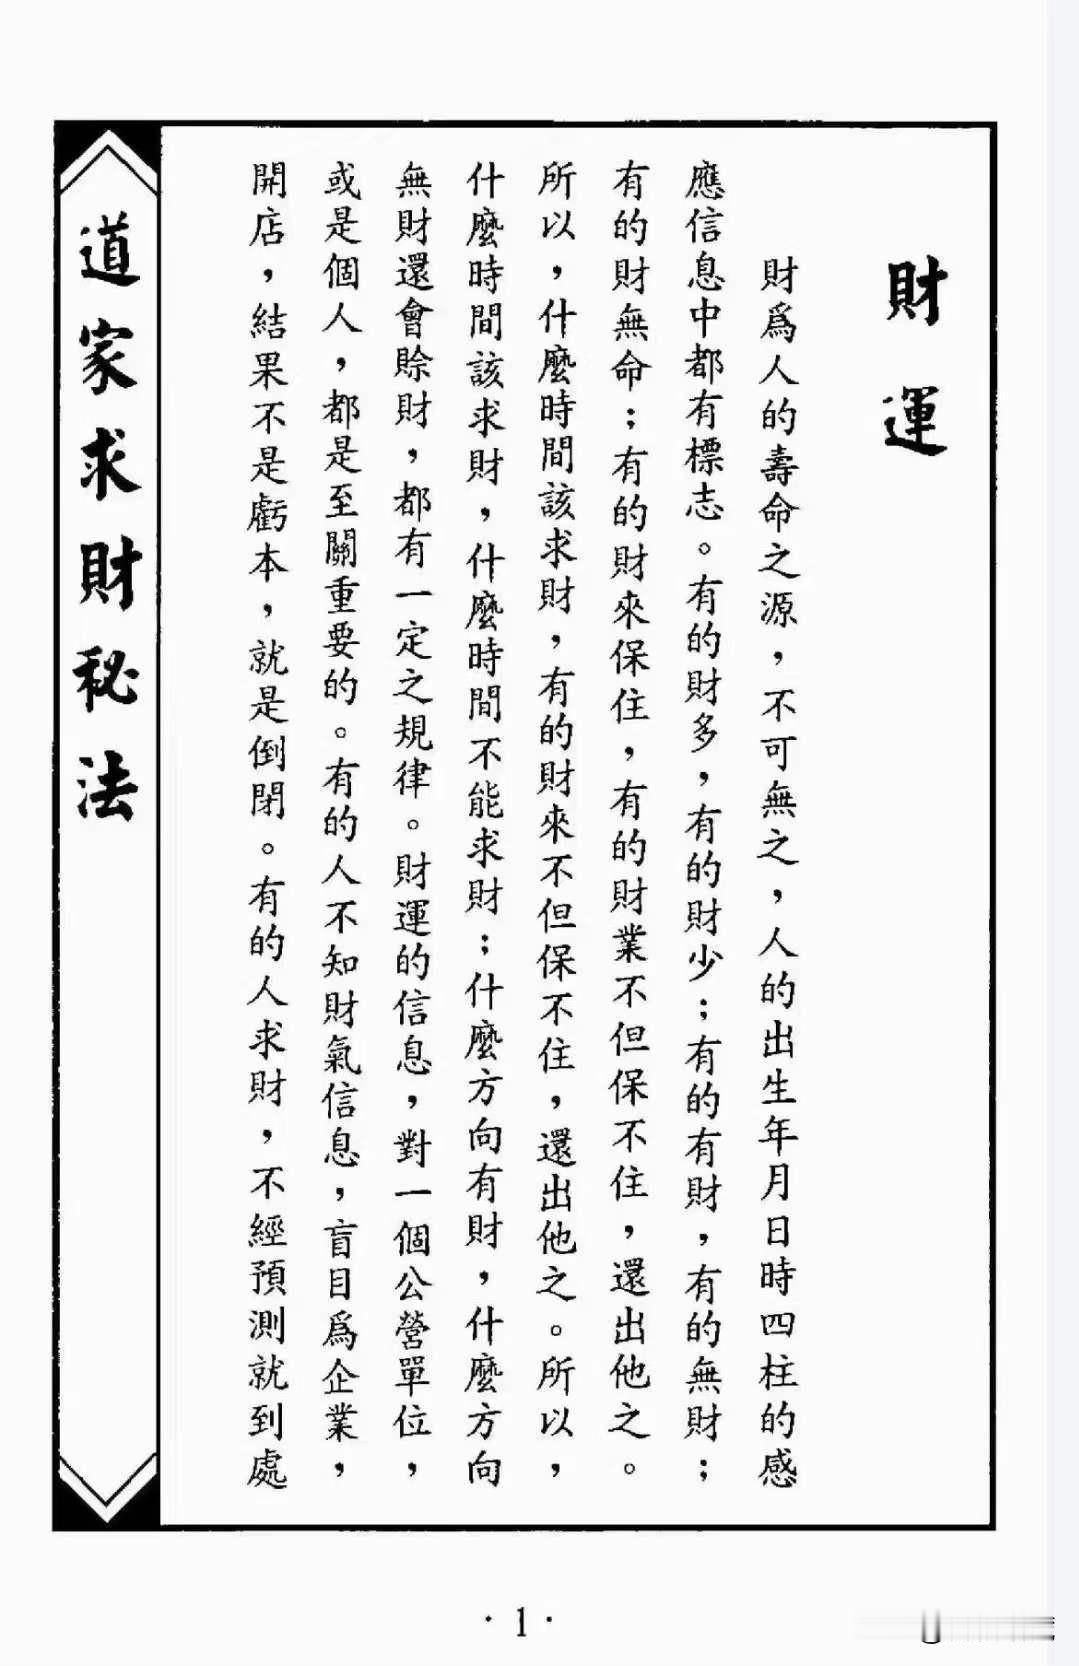 財運
財爲人的壽命之源，不可無之，人的出生年月日時四柱的感
應信息中都有標志。有的財多，有的財少；有的有財，有的無財；
有的財無命；有的財來保住，有的財業不但保不住，還出他之。
所以，什麼時間該求財，有的財來不但保不住，還出他之。所以，
什麼時間該求財，什麼時間不能求財；什麼方向有財，什麼方向
無財還會賒財，都有一定之規律。財運的信息，對一個公營單位，
或是個人，都是至關重要的。有的人不知財氣信息，盲目爲企業，
開店，結果不是虧本，就是倒閉。有的人求財，不經預測就到處
道家求財秘法
·1·